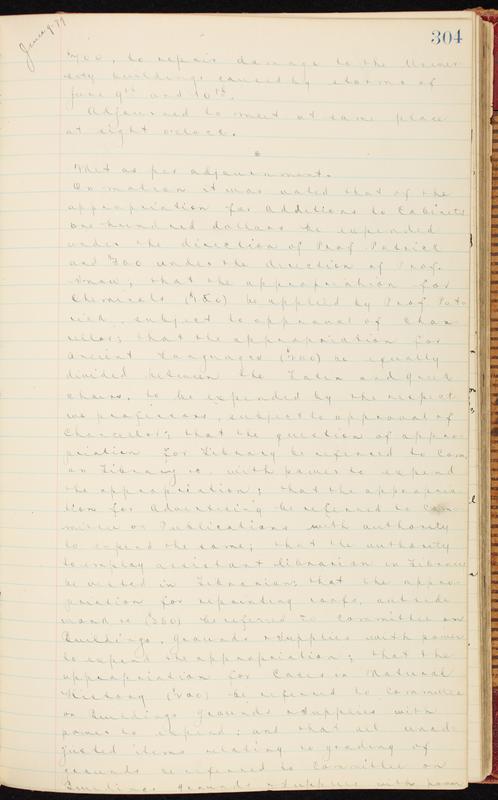 304
700, to repair damage to the Univer
sity buildings caused by storms of
June 9th and 10th.
Adjourned to meet at same place
at eight o'clock.
Met as per adjournment.
On motion it was voted that of the
appropriation for Additions to Cabinets
one hundred dollars be expended
under the direction of Prof. Patrick
and 300 under the direction of Prof.
Snow; that the appropriation for
Chemicals be applied by Prof Pat-
rick, subject to approval of Chan
cellor; that the appropriation for
Ancient Languages be equally
divided between the Latin and Greek
chairs, to be expended by the respect
ive professors, subject to approval of
Chancellor; that the question of appro-
priation for Library be referred to Com.
on Library with power to expend
the appropriation; that the appropria-
tion for Advertising be referred to Com-
mittee on Publications with authority
to expend the same; that the authority
to employ assistant librarian in Library
be vested in Librarian; that the appro-
priation for repainting roofs, outside
wood be referred to Committee on
Buildings, Grounds & Supplies with power
to expend the appropriation; that the
appropriation for Cases in Natural
History be referred to Committee
on Buildings Grounds & Supplies with
power to expend; and that all unad-
justed items relating to grading of
grounds be referred to Committee on
Buildings Grounds & Supplies with power